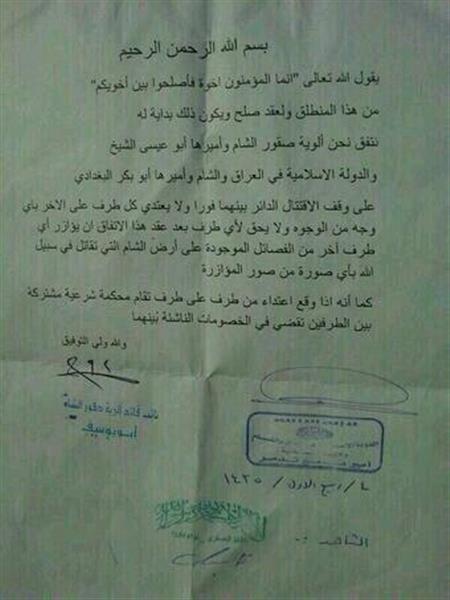 بسم الله الرحمن الرحيم
يقول الله تعالى "انما المؤمنون اخوة فأصلحوا بين أخويكم"
من هذا المنطلق ولعقد صلح ويكون ذلك بداية له
نتفق نحن ألوية صقور الشام وأميرها أبو عيسى الشيخ
والدولة الاسلامية في العراق والشام وأميرها أبو بكر البغدادي
على وقف الاقتتال الدائر بينهما فورا ولا يعتدي كل طرف على الاخر باي
وجه من الوجوه ولا يحق لأي طرف بعد عقد هذا الاتفاق ان يؤازر أي
طرف أخر من الفصائل الموجودة على أرض الشام التي تقاتل في سبيل
الله بأي صورة من صور المؤازرة
كما أنه اذا وقع اعتداء من طرف على طرف تقام محكمة شرعية مشتركة
بين الطرفين تقضي في الخصومات الناشئة بينهما
والله ولي التوفيق
نائب قائد ألوية صقور الشام
أبو يوسف
/ ربيع الأول / ١٤٣٥
الشاهد :-